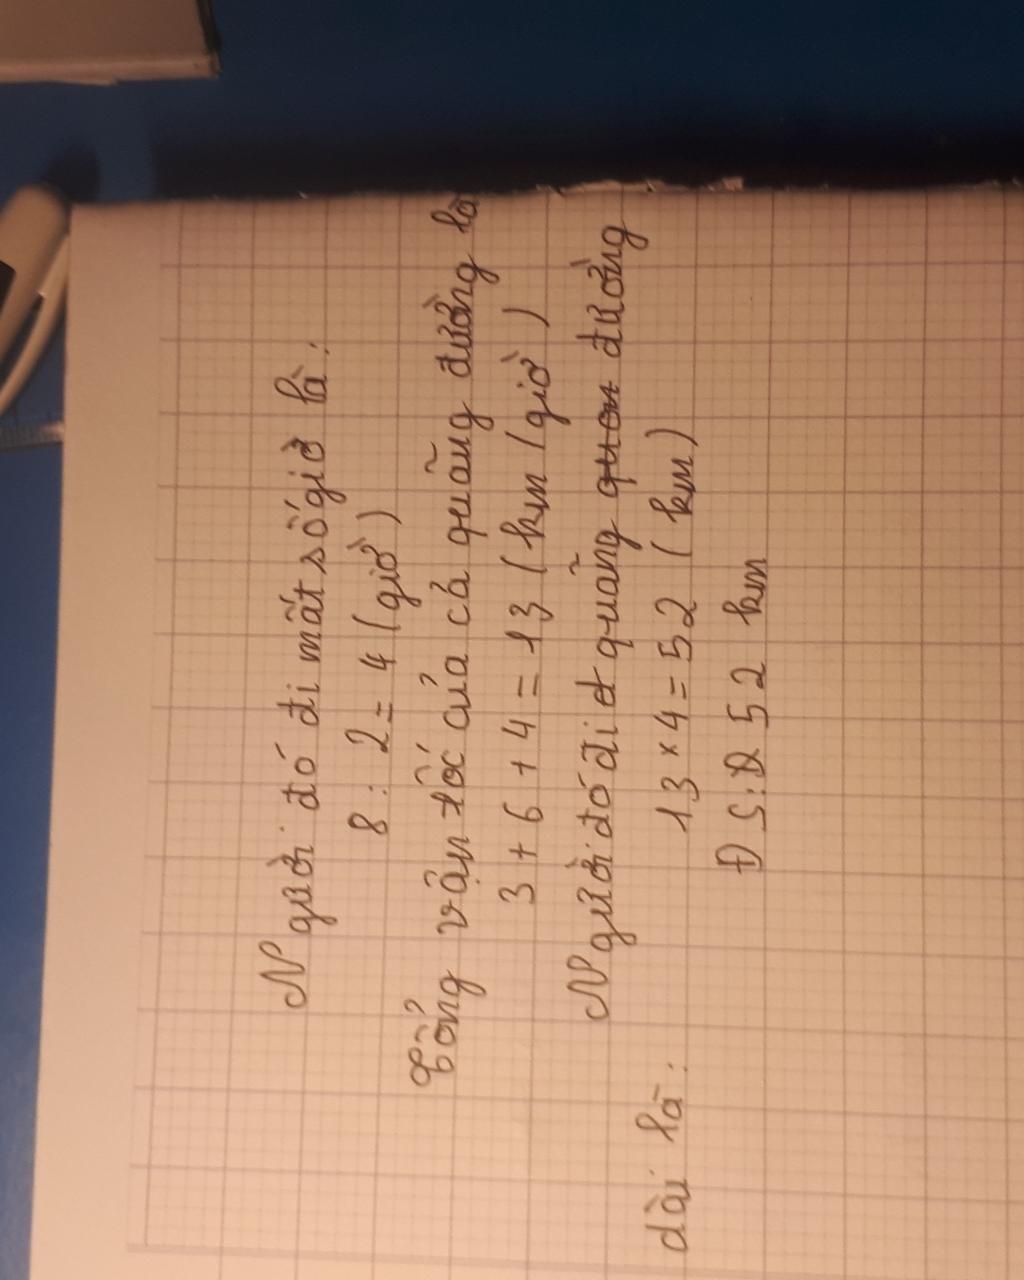 Người đó đi mất số giờ là:
8 : 2 = 4 (giờ)
Tổng vận tốc của cả quãng đường là
3 + 6 + 4 = 13 (km/giờ)
Người đó đi quãng đường
dài là:
13 × 4 = 52 (km)
ĐS: 52 km